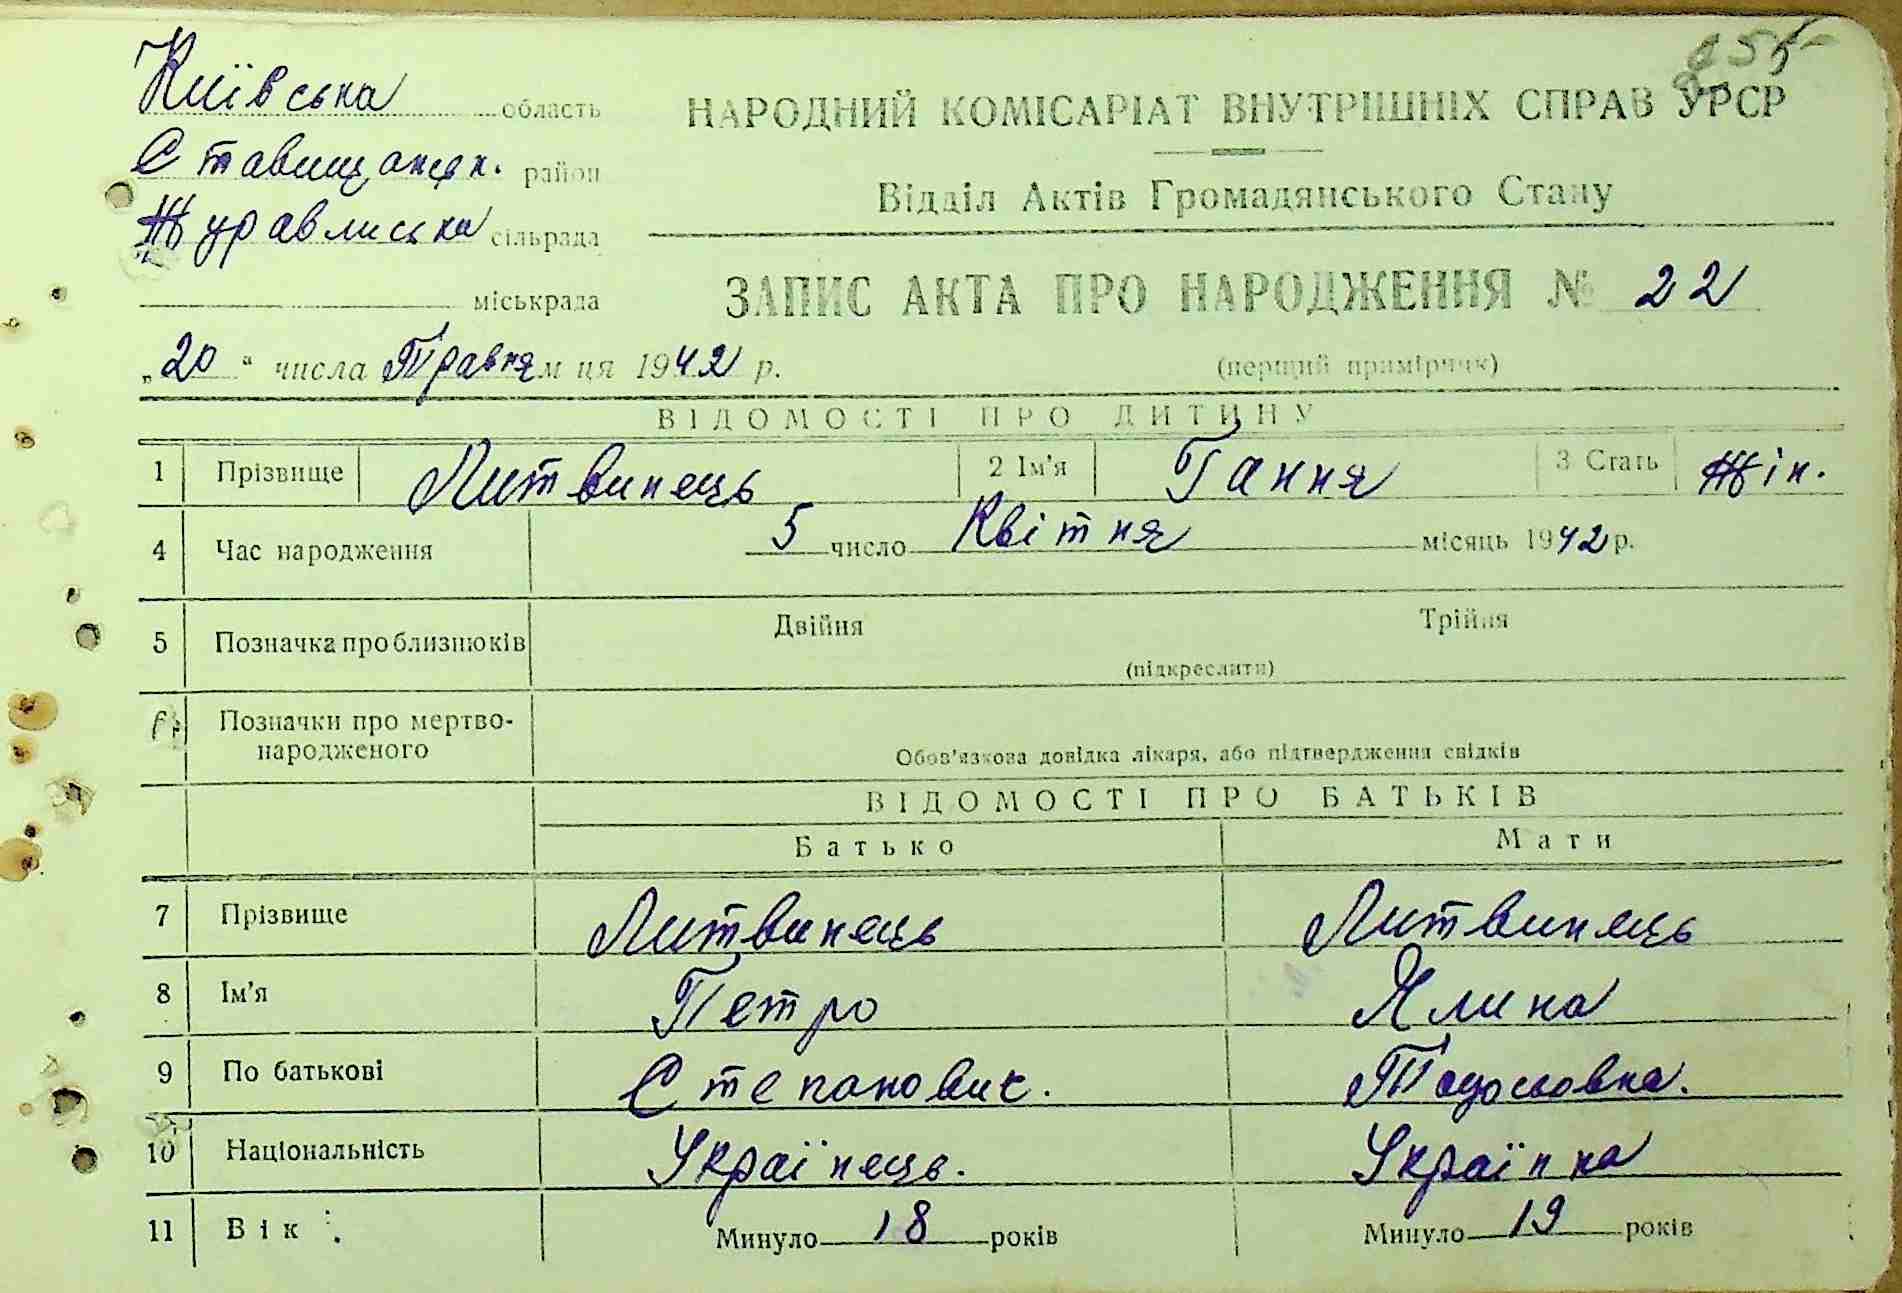 Київська область
255
НАРОДНИЙ КОМІСАРІАТ ВНУТРІШНІХ СПРАВ УРСР
район
Журавлиська сільрада
Відділ Актів Громадянського Стану
міськрада
ЗАПИС АКТА ПРО НАРОДЖЕННЯ № 22
„20“ числа Травня м ця 1942 р.
(перщий примірник)
ВІДОМОСТІ ПРО ДИТИНУ
1 Прізвище Литвинець 2 Ім'я Гання 3 Стать Жін.
4 Час народження 5 число Квітня місяць 1942 р.
5 Позначка про близнюків Двійня Трійня
(підкреслити)
6 Позначки про мертво-
народженого
Обов'язкова довідка лікаря, або підтвердження свідків
ВІДОМОСТІ ПРО БАТЬКІВ
Батько Мати
7 Прізвище Литвинець Литвинець
8 Ім'я Петро Ялина
9 По батькові Степанович. Тодосьовна.
10 Національність Українець. Українка
11 Вік Минуло 18 років Минуло 19 років